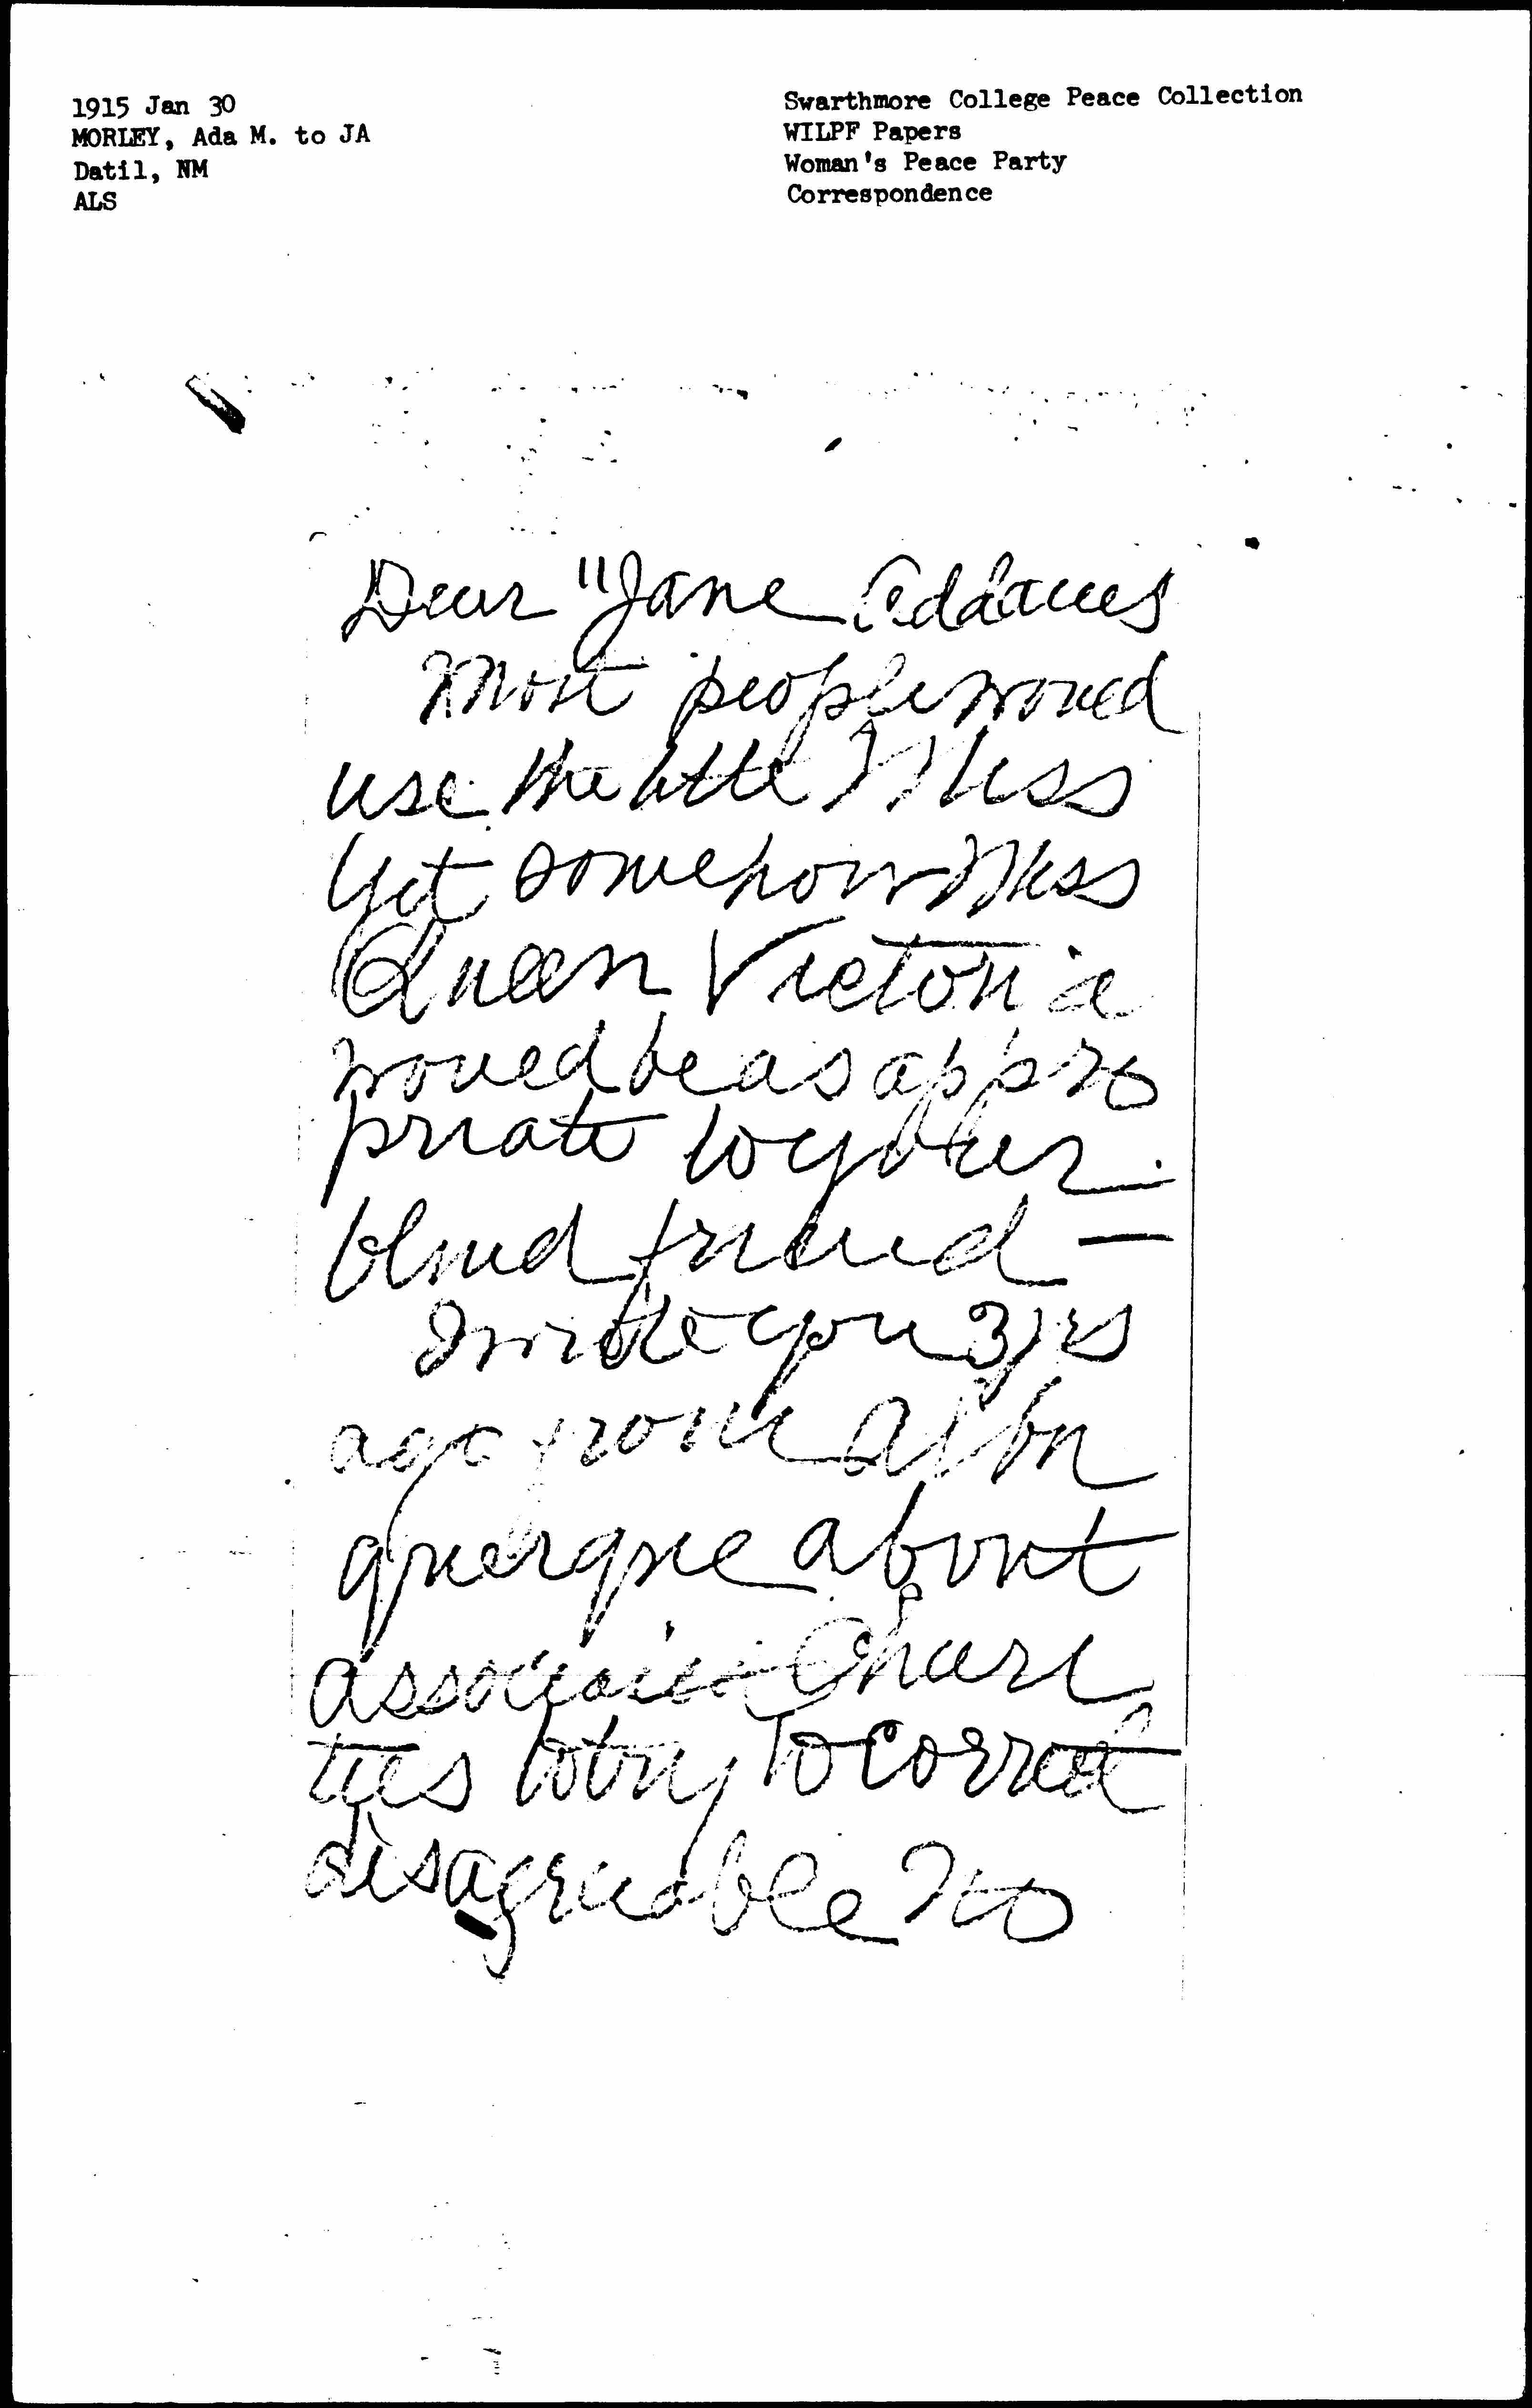 1915 Jan 30
MORLEY, Ada M. to JA
Datil, NM
ALS
Swarthmore College Peace Collection
WILPF Papers
Woman's Peace Party
Correspondence
Dear "Jane Addams
Most people would
use the title Miss
Yet somehow Miss
Queen Victoria
would be as appro
priate to your
blind friend —
I write you 3 yrs
ago from Albu
querque about
associated Chari
ties to try to correct
disagreeable